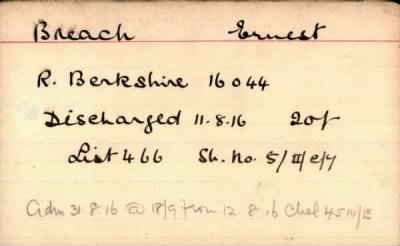 Breach Ernest
R. Berkshire 16044
Discharged 11.8.16 20/-
List 466 Sh. No. 5/II/e/7
adm 31 8 16 @ 18/9 from 12 8 16 Chel 45 III/E